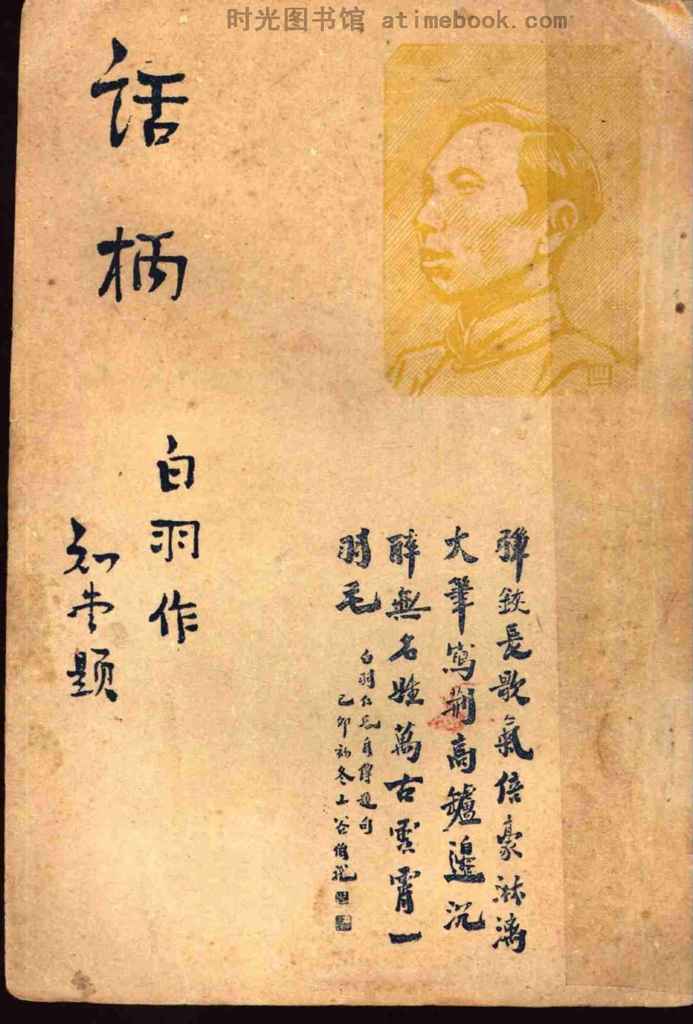 时光图书馆 atimebook.com
话柄
白羽作
知堂题
彈鋏長歌氣倍豪淋漓
大筆寫荆高鑪邊沉
醉無名姓萬古雲霄一
羽毛
白羽仁兄自傳題句
己卯初冬上谷